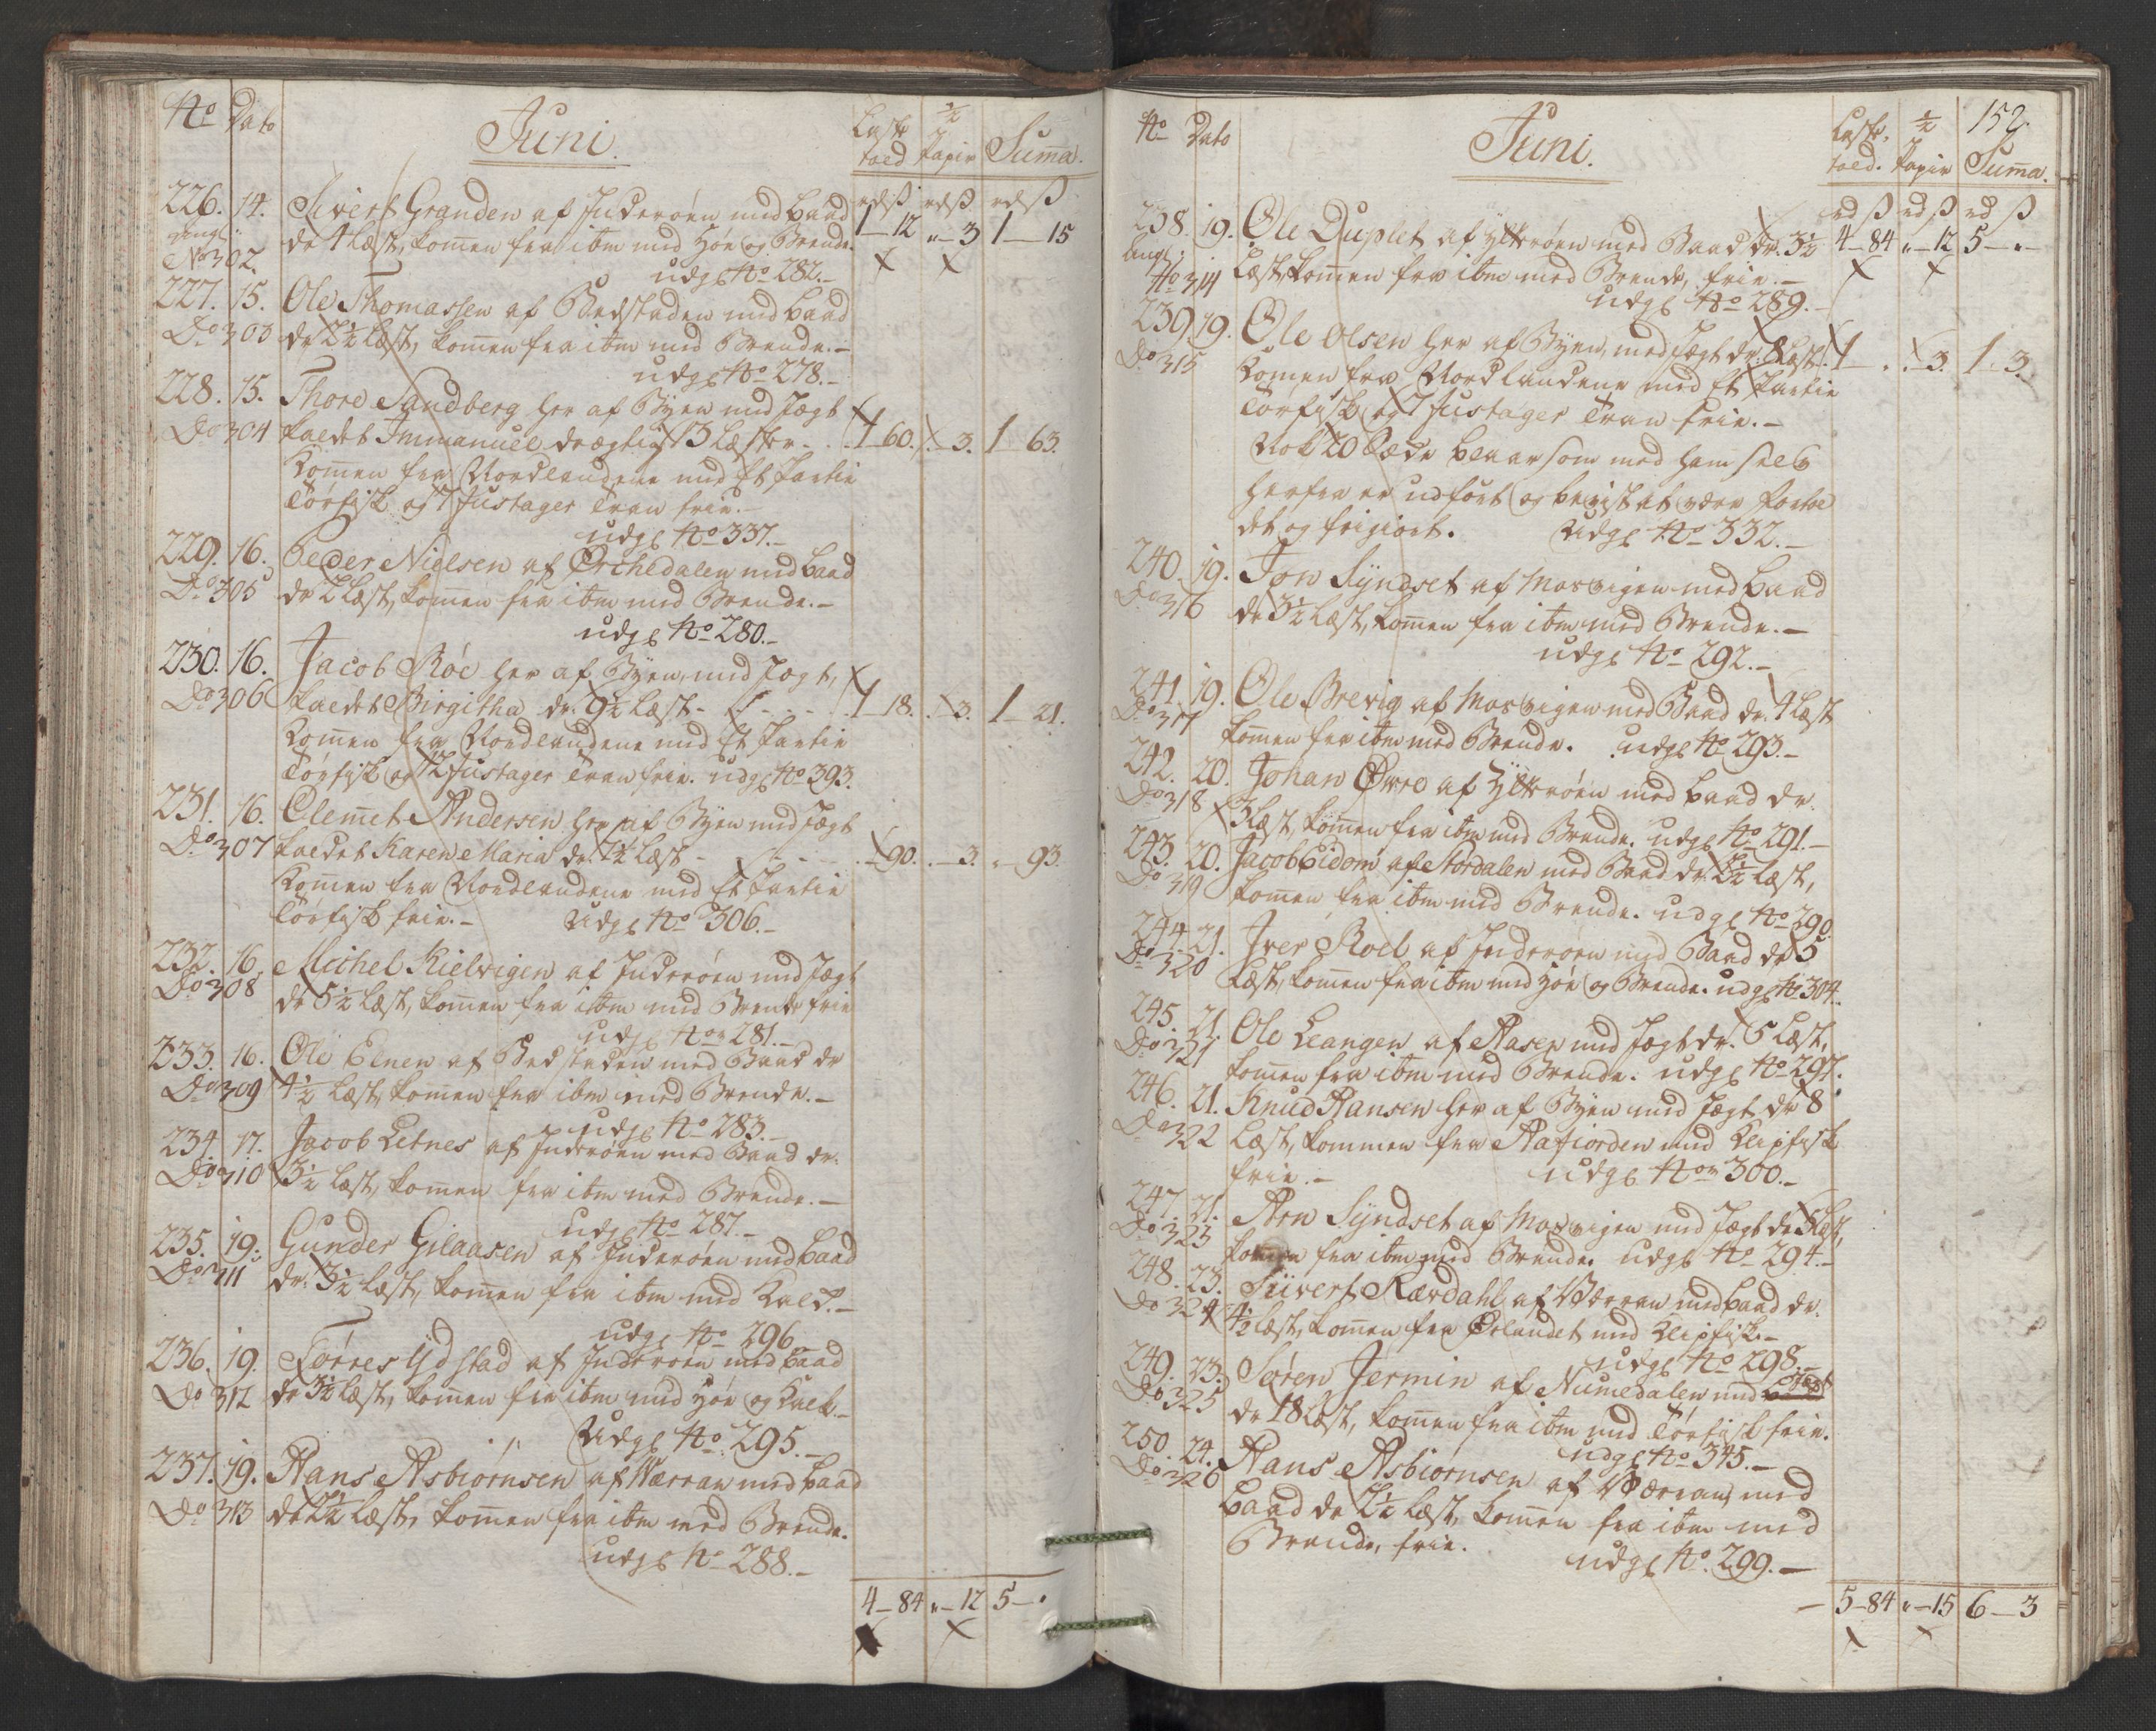 No Dato Juni. Laste toed ½ Papir Summa.
rdß rdß rdß
226. 14. Sivert Granden af Inderöen med Baad 1-12 „-3 1-15
No 302. dr 4 Læst, kommen fra ibm med Höe og Brende.
udg No 282.-
227. 15. Ole Thomassen af Bedstaden med Baad
Do 303 dr 2½ Læst, kommen fra ibm med Brende.-
udg No 278.-
228. 15. Thore Sandberg her af Byen med Jægt
Do 304 kaldet Immanuel drægtig 13 Læster - 1-60. -3. 1-63.
Kommen fra Nordlandene med Et Partie
Törfisk og 7 fustager Tran frie.-
udg No 337.-
229. 16. Peder Nielsen af Orchedalen med Baad
Do 305 dr 2 Læst, kommen fra ibm med Brende.-
udg No 280.-
230. 16. Jacob Röe her af Byen, med Jægt,
Do 306 kaldet Birgitha dr. 9½ Læst - 1-18. -3. 1-21.
Kommen fra Nordlandene med Et Partie
Törfisk og 12 fustager Tran frie. udg No 393.
231. 16. Clemet Andersen her af Byen med Jægt
Do 307 kaldet Karen Maria dr. 7½ Læst - -90. -3. „-93.
Kommen fra Nordlandene med Et Partie
Törfisk frie.- Udg No 306.-
232. 16. Michel Kielvigen af Inderöen med Jægt
Do 308 dr 5½ Læst, kommen fra ibm med Brende frie
udg No 281.-
233. 16. Ole Elnen af Bedstaden med Baad dr
Do 309 4½ Læst, kommen fra ibm med Brende.-
udg No 283.-
234. 17. Jacob Letnes af Inderöen med Baad dr.
Do 310 3½ Læst, kommen fra ibm med Brende.-
udg No 287.-
235. 19. Gunder Gilaasen af Inderöen med Baad
Do 311 dr. 3½ Læst, kommen fra ibm med Kalk.-
udg No 296
236. 19. Törres Ydstad af Inderöen med Baad
Do 312 dr 3½ Læst, kommen fra ibm med Höe og Kalk.-
Udg No. 295.-
237. 19. Hans Asbiörnsen af Værran med Baad
Do 313 dr 2½ Læst, kommen fra ibm med Brende.
udg No 288.-
4-84 „-12 5-„
152.
No Dato Juni. Laste toed. ½ Papir Summa.
rd ß rd ß rd ß
238. 19. Ole Duplet af Ytteröen med Baad dr. 3½ 4-84 „-12 5-„-
No 314 Læst, kommen fra ibm med Brende, frie.-
udg No 289.-
239. 19. Ole Olsen her af Byen, med Jægt dr. 8 Læst. 1- -3. 1-3.
Do 315 Kommen fra Nordlandene med Et Partie
Törfisk og 7 fustager Tran frie.-
Nok 20 som med ham selv
herfra er udfört og bevist at være fortoe
det og frigiort. Udg No 332.-
240. 19. Jon Syndset af Mosvigen med Baad
Do 316 dr 3½ Læst, kommen fra ibm med Brende.-
udg No 292.-
241. 19. Ole Brevig af Mosvigen med Baad dr. 4 Læst
Do 317 kommen fra ibm med Brende. udg No 293.-
242. 20. Johan Öwre af Ytteröen med Baad dr.
Do 318 3 Læst, kommen fra ibm med Brende. udg No 291.-
243. 20. Jacob Eidom af Stördalen med Baad dr. 2½ Læst,
Do 319 kommen fra ibm med Brende. udg No 290.
244. 21. Iver Roel af Inderöen med Baad dr 5
Do 320 Læst, kommen fra ibm med Höe og Brende. udg No 304.
245. 21. Ole Leangen af Aasen med Jægt dr. 5 Læst,
Do 321 kommen fra ibm med Brende. udg No 297.
246. 21. Knud Hansen her af Byen med Jægt dr 8
Do 322 Læst, kommen fra Aafiorden med Klipfisk
frie.- udg No 300.-
247. 21. Arn Syndset af Mosvigen med Jægt dr 5 Læst,
Do 323 kommen fra ibm med Brende. udg No 294.-
248. 23. Siivert Rærdahl af Værran med Baad dr.
Do 324 4½ Læst, kommen fra Örlandet med Klipfisk.-
udg No 298.-
249. 23. Sören Jermin af Numedalen med Jægt
Do 325 dr 18 Læst, kommen fra ibm med Törfisk frie.
udg No 345.-
250. 24. Hans Asbiörnsen af Værran, med
Do 326 Baad dr 2½ Læst, kommen fra ibm med
Brende, frie. udg No. 299.-
- 5-84 „-15 6-3